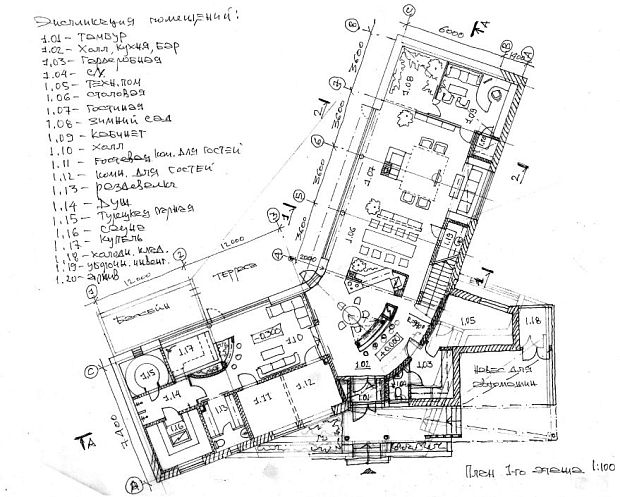 Экспликация помещений:
1.01 - Тамбур
1.02 - Холл, кухня, бар
1.03 - Гардеробная
1.04 - С/У
1.05 - Техн. пом
1.06 - Столовая
1.07 - Гостиная
1.08 - Зимний сад
1.09 - Кабинет
1.10 - Холл
1.11 - Гостевая ком. для гостей
1.12 - Комн. для гостей
1.13 - Раздевалка
1.14 - Душ
1.15 - Турецкая парная
1.16 - Сауна
1.17 - Купель
1.18 - Холодн. клад.
1.19 - Уборочн. инвент.
1.20 - Архив
А
6000
С
В
А
8
7
6
5
3600
3600
3600
2
2
1
1.08
1.09
1.07
1.06
1.19
12000
12000
1
2
3
Бассейн
Терраса
2000
С
А
7400
А
1.15
1.17
1.14
1.16
1.13
1.10
1.11
1.12
1.02
1.01
1.03
1.05
1.18
Навес для
автомашин
План 1-го этажа 1:100